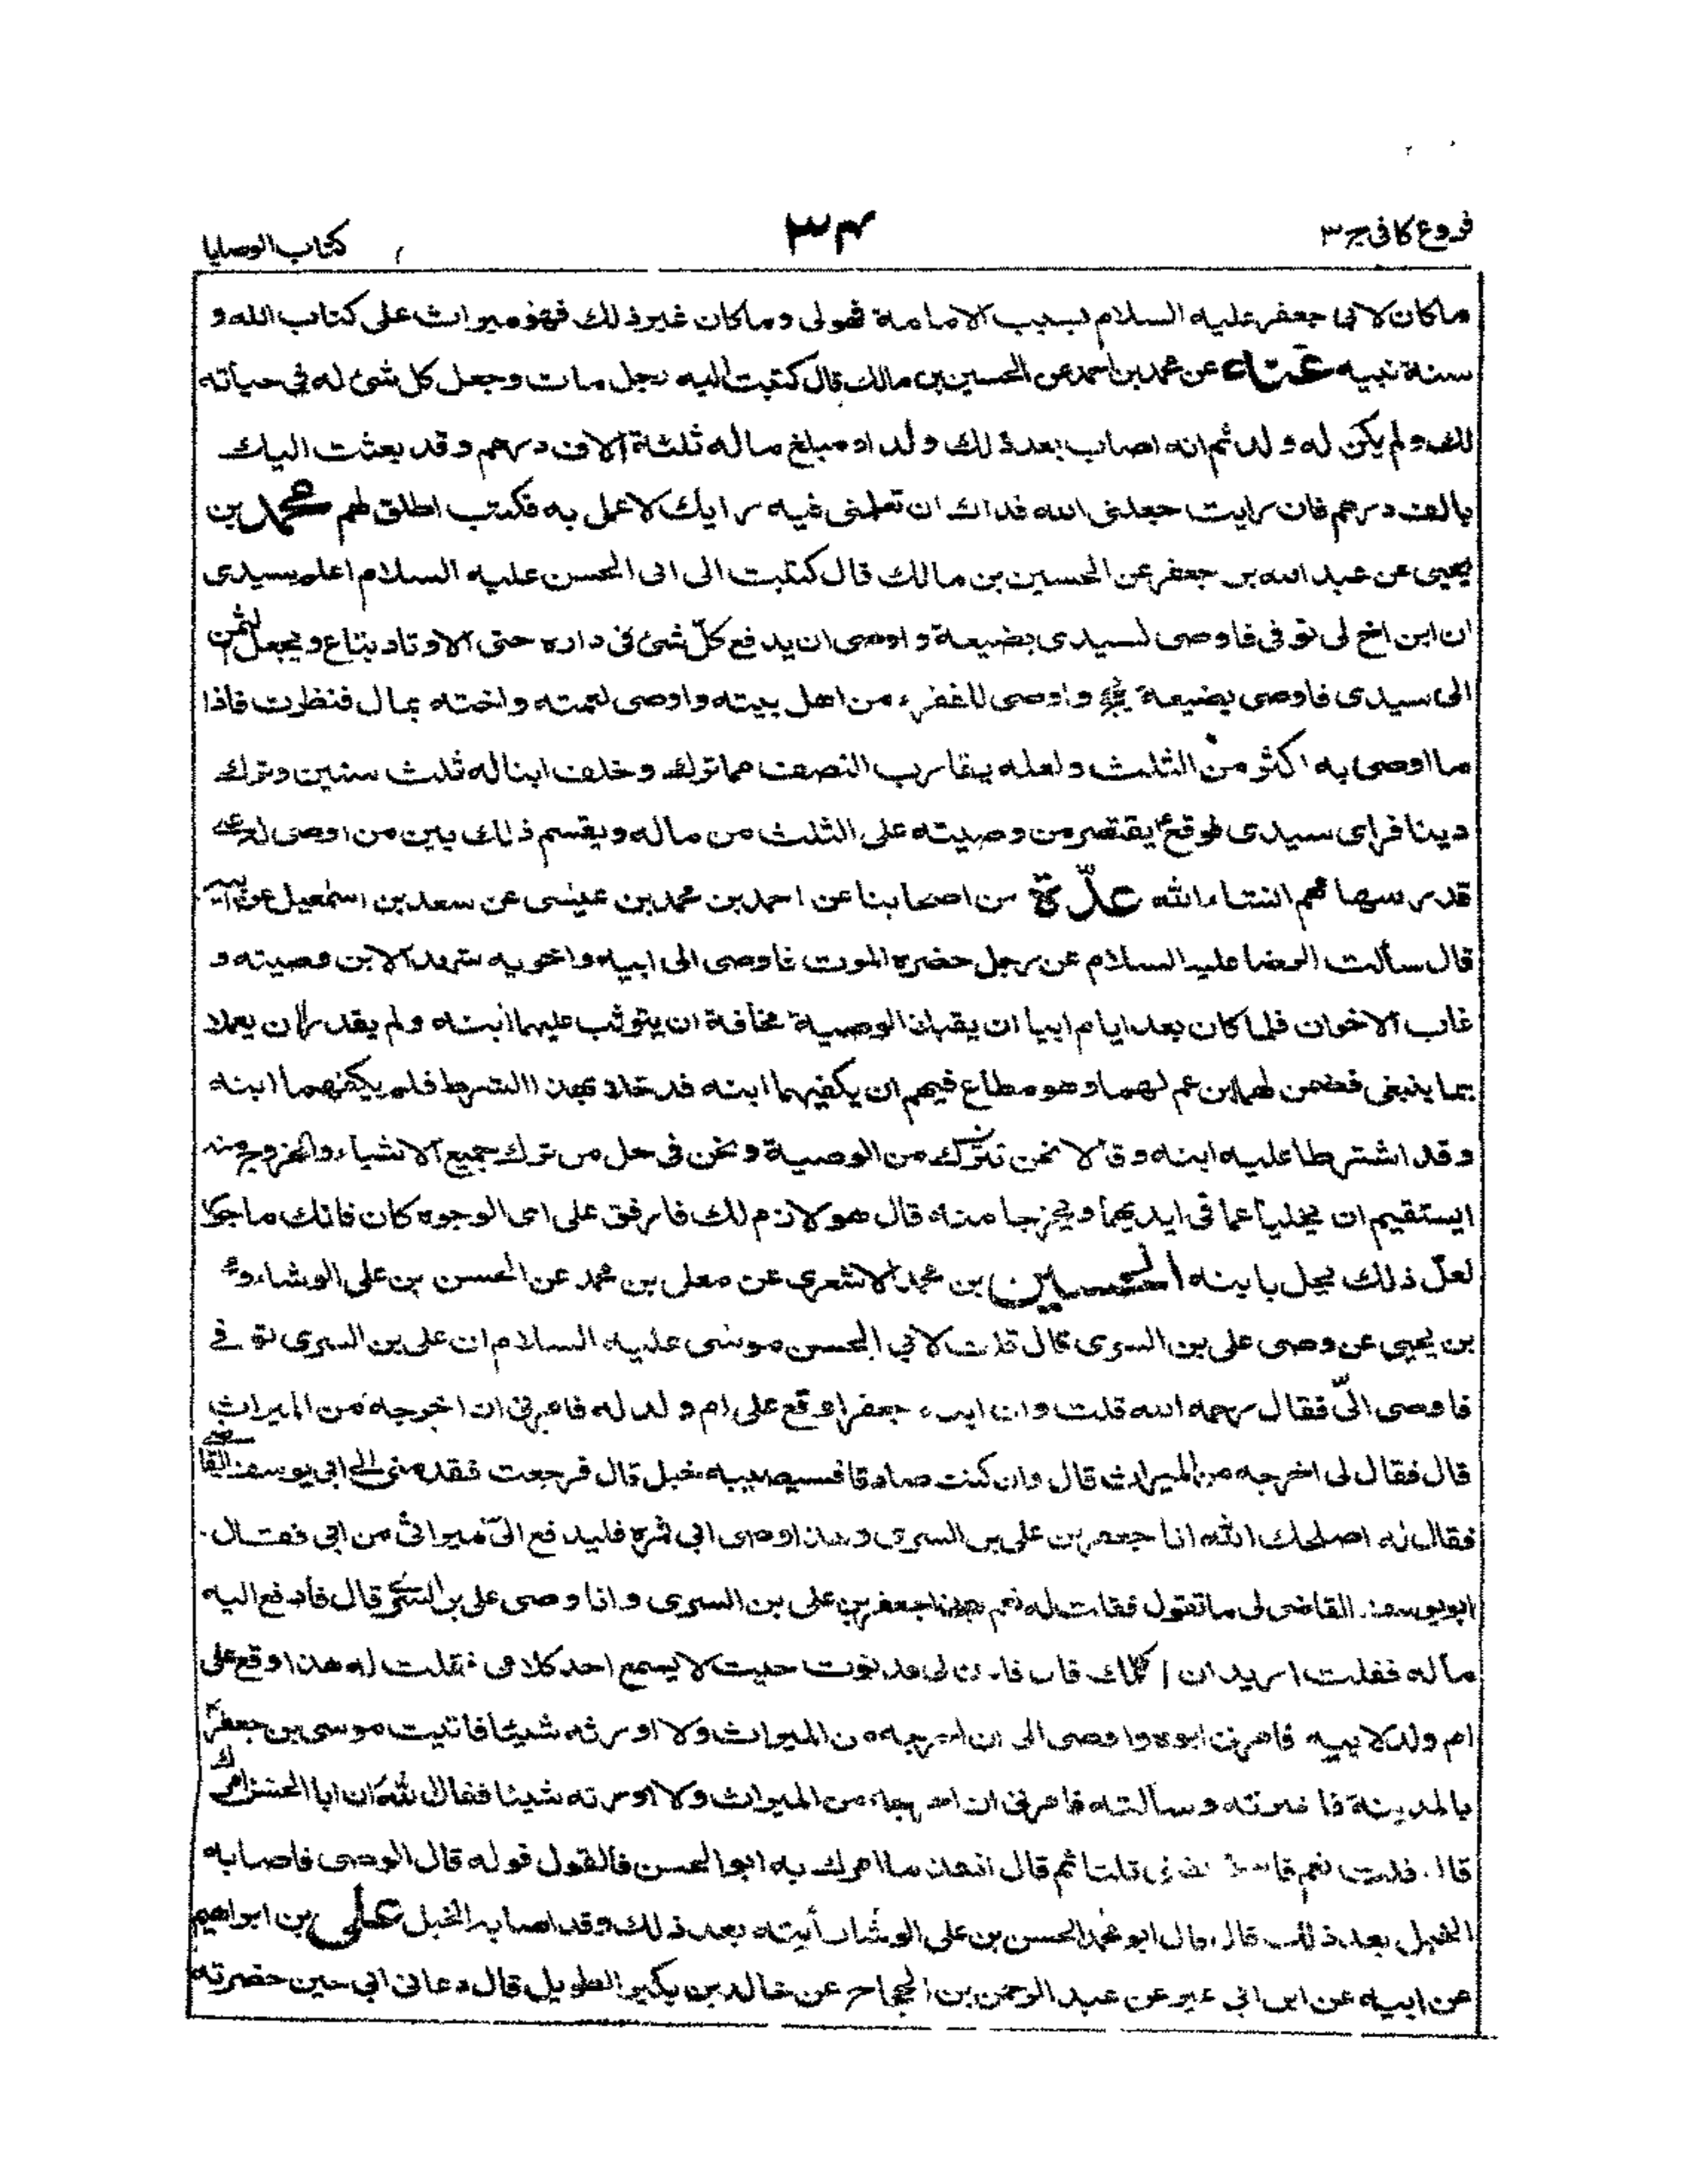 فروع كافى ج ٣
٣٤
كتاب الوصايا
ما كان لابى جعفر عليه السلام بسبب الامامة فهو لى وما كان غير ذلك فهو ميراث على كتاب الله و
سنة نبيه عنه عن محمد بن احمد عن الحسين بن مالك قال كتبت اليه رجل مات وجعل كل شئ له فى حياته
لك ولم يكن له ولد ثم انه اصاب بعد ذلك ولدا ومبلغ ماله ثلثة آلاف درهم وقد بعثت اليك
بالف درهم فان رايت جعلنى الله فداك ان تعلمنى فيه رايك لاعمل به فكتب اطلق لهم محمد بن
يحيى عن عبد الله بن جعفر عن الحسين بن مالك قال كتبت الى ابى الحسن عليه السلام اعلم سيدى
ان ابن اخ لى توفى فاوصى لسيدى بضيعة و اوصى ان يدفع كلّ شئ فى داره حتى الاوتاد يتباع ويجعل الثمن
الى سيدى فاوصى بضيعة واوصى للفقراء من اهل بيته واوصى لعمته واخته بمال فنظرت فاذا
ما اوصى به اكثر من الثلث ولعله يقارب النصف مما ترك وخلف ابنا له ثلث سنين وترك
دينا فراى سيدى فوقعؑ يقتصر من وصيته على الثلث من ماله ويقسم ذلك بين من اوصى له على
قدر سهامهم انشاء الله عدّة من اصحابنا عن احمد بن محمد بن عيسى عن سعد بن اسمعيل عن ابيه
قال سألت الرضا عليه السلام عن رجل حضره الموت فاوصى الى ابيه واخويه شهد الابن وصيته و
غاب الاخوان فلما كان بعد ايام ابيا ان يقبلا الوصية مخافة ان يتوثب عليهما ابنه ولم يقدرا ان يعملا
بما ينبغى فضمن لهما ابن عم لهما وهو مطاع فيهم ان يكفيهما ابنه فدخلا بهذا الشرط فلم يكفهما ابنه
وقد اشترطا عليه ابنه وقالا نحن نترك من الوصية ونحن فى حل من ترك جميع الاشياء والخروج منه
ايستقيم ان يخليا عما فى ايديهما ويخرجا منه قال هو لازم لك فارفق على اى الوجوه كان فانك ماجور
لعلّ ذلك يحل بابنه الحسين بن محمد الاشعرى عن معلى بن محمد عن الحسن بن على الوشاء
بن يحيى عن وصى على بن السرى قال قلت لابى الحسن موسى عليه السلام ان على بن السرى توفى
فاوصى الىّ فقال رحمه الله قلت وان ابنه جعفرا وقع على ام ولد له فامرنى ان اخرجه من الميراث
قال فقال لى اخرجه من الميراث قال وان كنت صادقا فسيصيبه خبل قال فرجعت فقدمنى الى ابى يوسف القاضى
فقال له اصلحك الله انا جعفر بن على بن السرى وهذا وصى ابى فمره فليدفع الىّ ميراثى من ابى فقال
ابو يوسف القاضى لى ما تقول فقلت له نعم هذا جعفر بن على بن السرى وانا وصى على بن السرى قال فادفع اليه
ماله فقلت اريد ان اكلمك قال فادن لى فدنوت حيث لا يسمع احد كلامى فقلت له هذا وقع على
ام ولد لابيه فامرنى ابوه واوصى الى ان اخرجه من الميراث ولا اورثه شيئا فاتيت موسى بن جعفرؑ
بالمدينة فاخبرته وسألته فامرنى ان اخرجه من الميراث ولا اورثه شيئا فقال الله ان ابا الحسن امرك
قال فلت نعم ثلثا ثم قال انفذ ما امرك به ابو الحسن فالقول قوله قال الوصى فاصابه
الخبل بعد ذلك قال قال ابو محمد الحسن بن على الوشا رأيته بعد ذلك وقد اصابه الخبل على بن ابراهيم
عن ابيه عن ابن ابى عمير عن عبد الرحمن بن الحجاج عن خالد بن بكير الطويل قال دعانى ابى حين حضرته